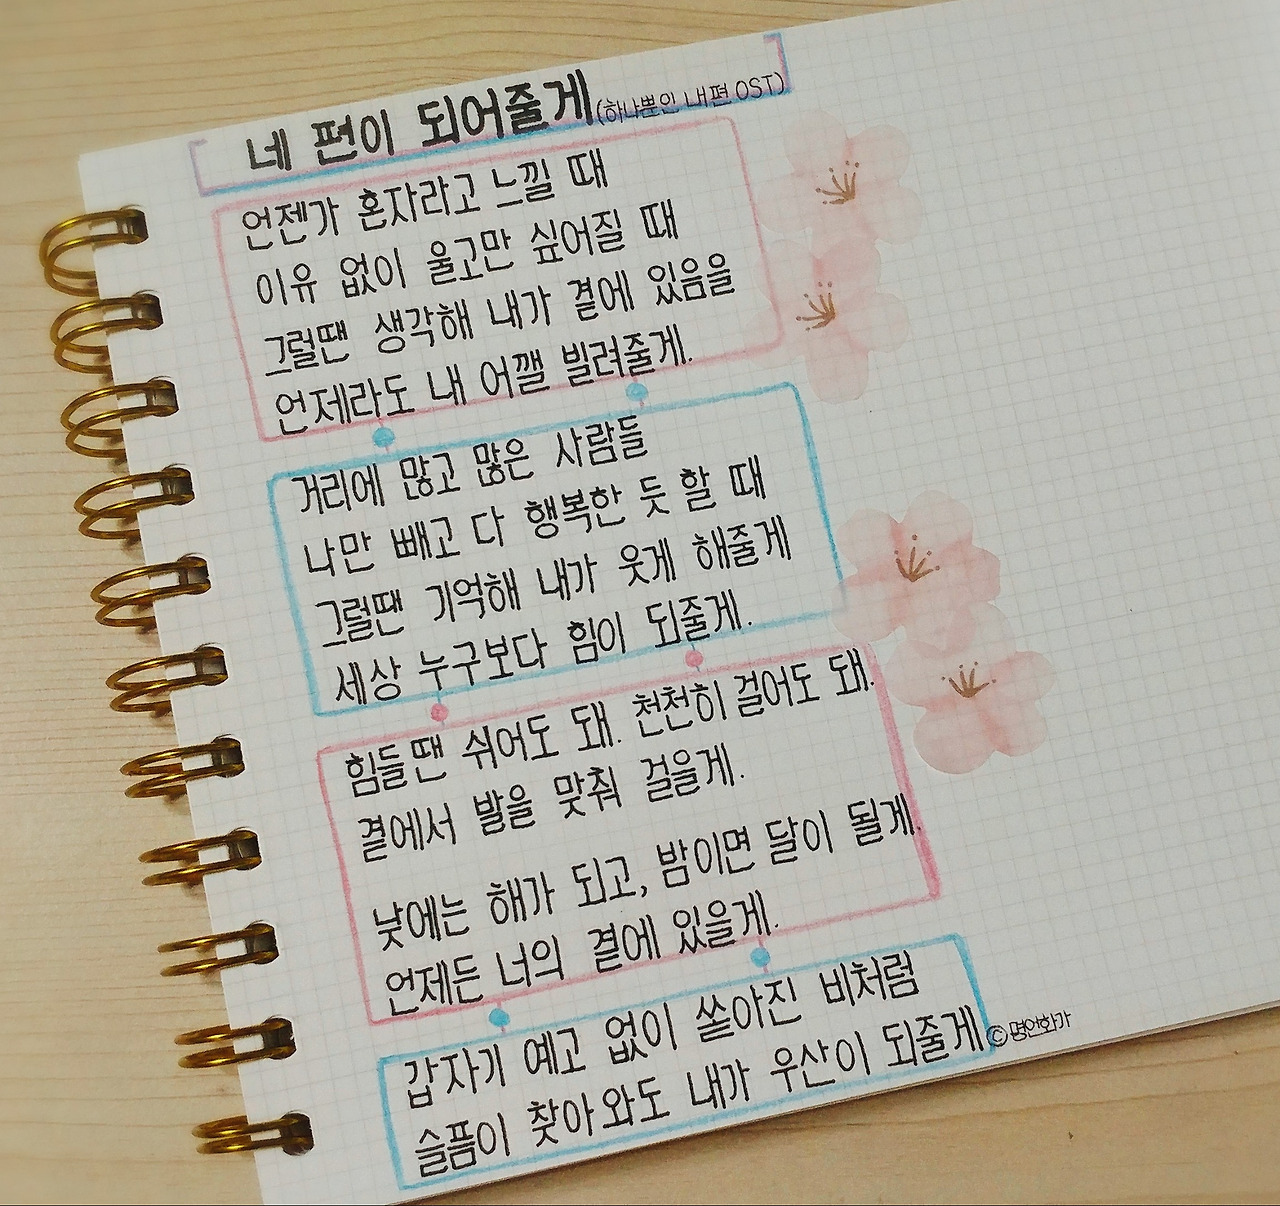 네 편이 되어줄게(하나뿐인 내편 OST)
언젠가 혼자라고 느낄 때
이유 없이 울고만 싶어질 때
그럴땐 생각해 내가 곁에 있음을
언제라도 내 어깰 빌려줄게.
거리에 많고 많은 사람들
나만 빼고 다 행복한 듯 할 때
그럴땐 기억해 내가 웃게 해줄게
세상 누구보다 힘이 되줄게.
힘들땐 쉬어도 돼. 천천히 걸어도 돼.
곁에서 발을 맞춰 걸을게.
낮에는 해가 되고, 밤이면 달이 될게.
언제든 너의 곁에 있을게.
갑자기 예고 없이 쏟아진 비처럼
슬픔이 찾아와도 내가 우산이 되줄게